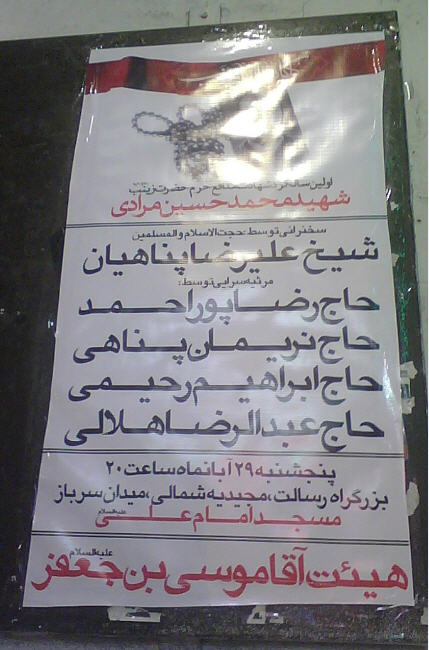 اولین سالگرد شهادت مدافع حرم حضرت زینب
شهید محمد حسین مرادی
سخنرانی توسط: حجت الاسلام والمسلمین
شیخ علیرضا پناهیان
مرثیه سرایی توسط:
حاج رضا پوراحمد
حاج نریمان پناهی
حاج ابراهیم رحیمی
حاج عبدالرضا هلالی
پنجشنبه ۲۹ آبانماه ساعت ۲۰
بزرگراه رسالت، مجیدیه شمالی، میدان سرباز
مسجد امام علی علیه السلام
هیئت آقا موسی بن جعفر علیه السلام